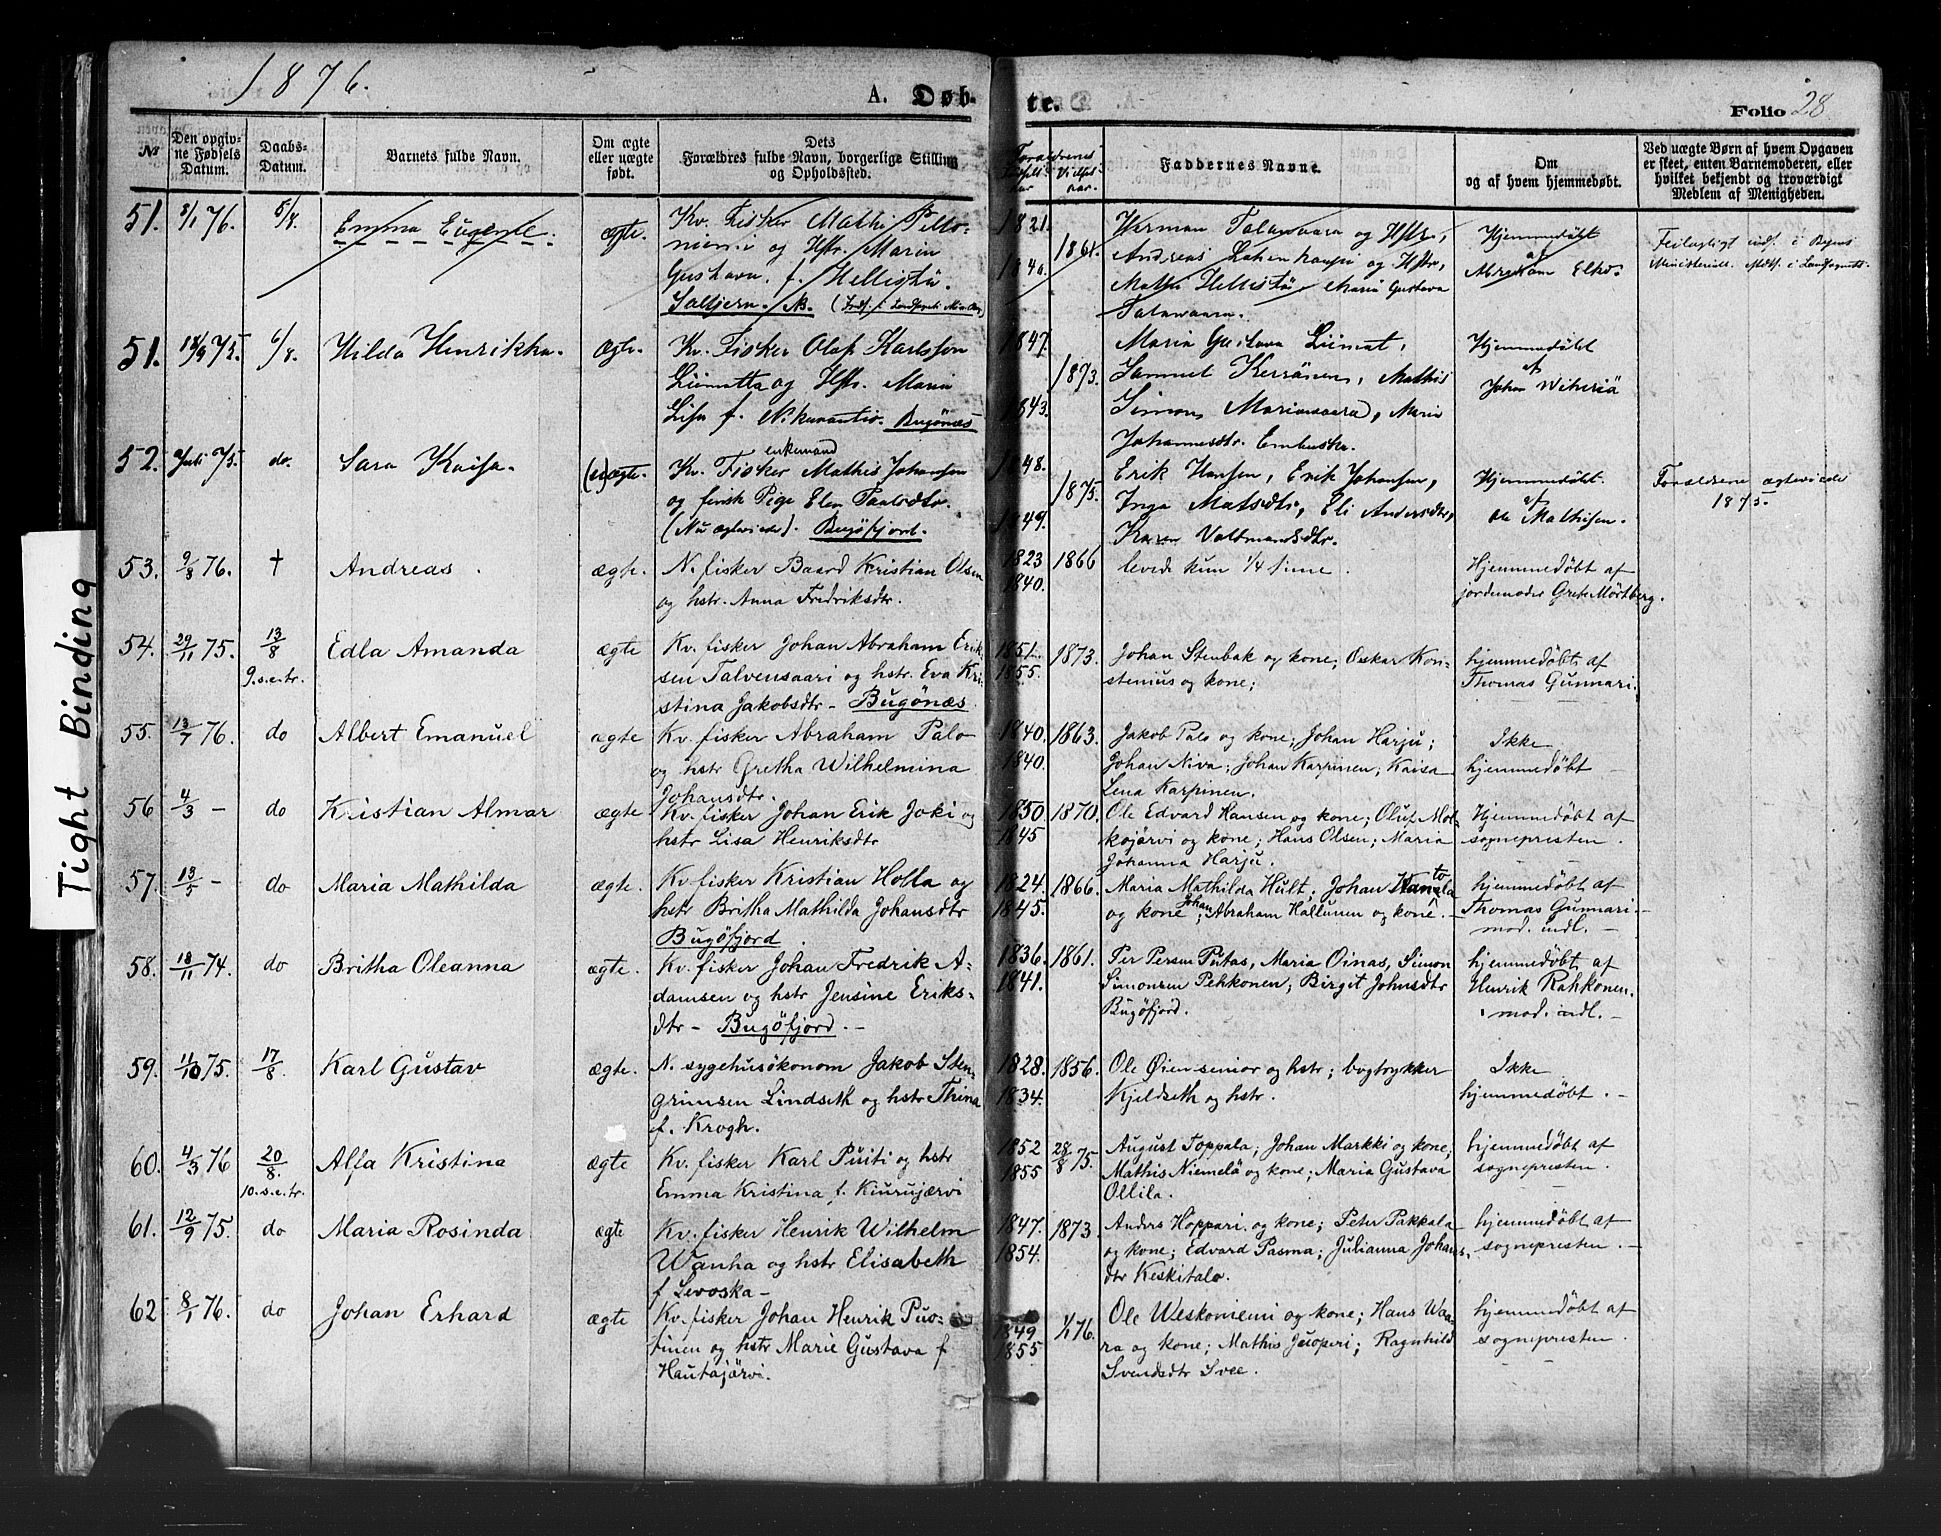 1876.
A. Døb-
te.
Folio 28
№
Den opgiv-
ne Fødsels
Datum.
Daabs-
Datum.
Barnets fulde Navn.
Om ægte
eller uægte
født.
Dets
Forældres fulde Navn, borgerlige Stilling
og Opholdssted.
Forældrenes
Vielses-
aar.
Faddernes Navne.
Om
og af hvem hjemmedøbt.
Ved uægte Børn af hvem Opgaven
er skeet, enten Barnemoderen, eller
hvilket bekjendt og troværdigt
Medlem af Menigheden.
51. 8/1 76. 5/8. Emma Eugenie. ægte. Kv. Fisker Mathi Pello-
niemi og Hstr. Maria
Gustava. f. Hellistö
(Indf. i Landsognets
1821.
1861.
1840.
Herman Talavaara og Hstr.,
Andreas og Hstr,
Mathi Hellistö Maria Gustava
Talavaara.
Hjemmedøbt
af
Abraham
Feilagtigt indf. i Byens
Ministerial. i Landsognets
51. 6/8 Hilda Henrikka. Ægte. Kv. Fisker Olaf Karlsson
Liimatta og Hstr. Maria
Lisa f. Bugönæs
1847.
1873.
1843.
Maria Gustava Liimat,
Samuel Keränen, Mathis
Simon Marianvaara, Maria
Johannesdtr.
Hjemmedøbt
af
Johan
52. Juli 75. do. Sara Kaisa. (u)ægte. Kv. Fisker enkemand Mathis Johansen
og finsk Pige Elen Paulsdtr.
(Nu ægteviede). Bugöfjord.
1848.
1875.
1849.
Erik Hansen, Erik Johansen,
Inga Matsdtr, Eli Andersdtr,
Karen Valdmandsdtr.
Hjemmedøbt
af
Ole Mathisen.
Forældrene ægteviede
1875.
53. 9/8 76. † Andreas. ægte. N. fisker Baard Kristian Olsen
og hstr. Anna Fredriksdtr.
1823
1840.
1866
levede kun 1/4 time.
Hjemmedöbt af
jordemoder Grete Mörtberg.
54. 29/11 75. 13/8
9. s. e. tr.
Edla Amanda ægte Kv. fisker Johan Abraham Erik-
sen Talvensaari og hstr. Eva Kri-
stina Jakobsdtr - Bugönæs.
1851.
1855.
1873.
Johan Stenbak og kone; Oskar Kon-
stenius og kone;
hjemmedöbt af
Thomas Gunnari.
55. 13/7 76. do Albert Emanuel ægte Kv. fisker Abraham Palo
og hstr Gretha Wilhelmina
Johansdtr.
1840
1840.
1863.
Jakob Palo og kone; Johan Harju;
Johan Niva; Johan Karpinen; Kaisa
Lena Karpinen.
Ikke
hjemmedöbt -
56 4/3 - do Kristian Almar ægte Kv. fisker Johan Erik Joki og
hstr Lisa Henriksdtr
1850
1845
1870.
Ole Edvard Hansen og kone; Oluf Mol-
kojärvi og kone; Hans Olsen; Maria
Johanna Harju.
Hjemmedöbt af
sognepresten.
57. 13/5 - do Maria Mathilda ægte. Kv. fisker Kristian Holla og
hstr Britha Mathilda Johansdtr
Bugöfjord.
1824.
1845.
1866.
Maria Mathilda Hult; Johan
og kone; Johan Abraham Hallunen og kone. -
hjemmedöbt af
Thomas Gunnari -
mod. indl. -
58. 18/11 74. do Britha Oleanna ægte. Kv. fisker Johan Fredrik A-
damsen og hstr Jensine Eriks-
dtr - Bugöfjord. -
1836.
1841.
1861.
Per Persen Pietas, Maria Oinas, Simon
Simonsen Pehkonen; Birgit Johnsdtr
Bugöfjord.
hjemmedöbt af
Henrik Rahkonen.
mod. indl. -
59. 11/10 75. 17/8. Karl Gustav ægte. N. sygehusökonom Jakob Sten-
grimsen Lindseth og hstr Thina
f. Krogh.
1828.
1834.
1856.
Ole Øien senior og hstr; bogtrykker
Kjeldseth og hstr.
Ikke
hjemmedöbt. -
60. 4/3 76 20/8.
10. s. e. tr.
Alfa Kristina ægte Kv. fisker Karl Puiti og hstr
Emma Kristina f. Kiurujärvi
1852
1855
28/8 75.
August Toppala; Johan Markki og kone;
Mathis Niemelä og kone; Maria Gustava
Ollila.
hjemmedöbt af
sognepresten.
61. 12/9 75. do Maria Rosinda ægte Kv. fisker Henrik Wilhelm
Wanha og hstr Elisabeth
f. Levoska -
1847.
1854.
1873
Anders Hoppari og kone; Peter Pakkala
og kone; Edvard Pasma; Julianna Johans-
dtr Keskitalo.
hjemmedöbt af
sognepresten. -
62 8/1 76. do Johan Erhard ægte Kv. fisker Johan Henrik Puo-
tinen og hstr Marie Gustava f
Hautajärvi.
1849
1855
1/1 76.
Ole Weskoniemi og kone; Hans Waa-
ra og kone; Mathis Juoperi; Ragnhild
Svendsdtr Svee.
hjemmedöbt af
sognepresten.
Tight Binding